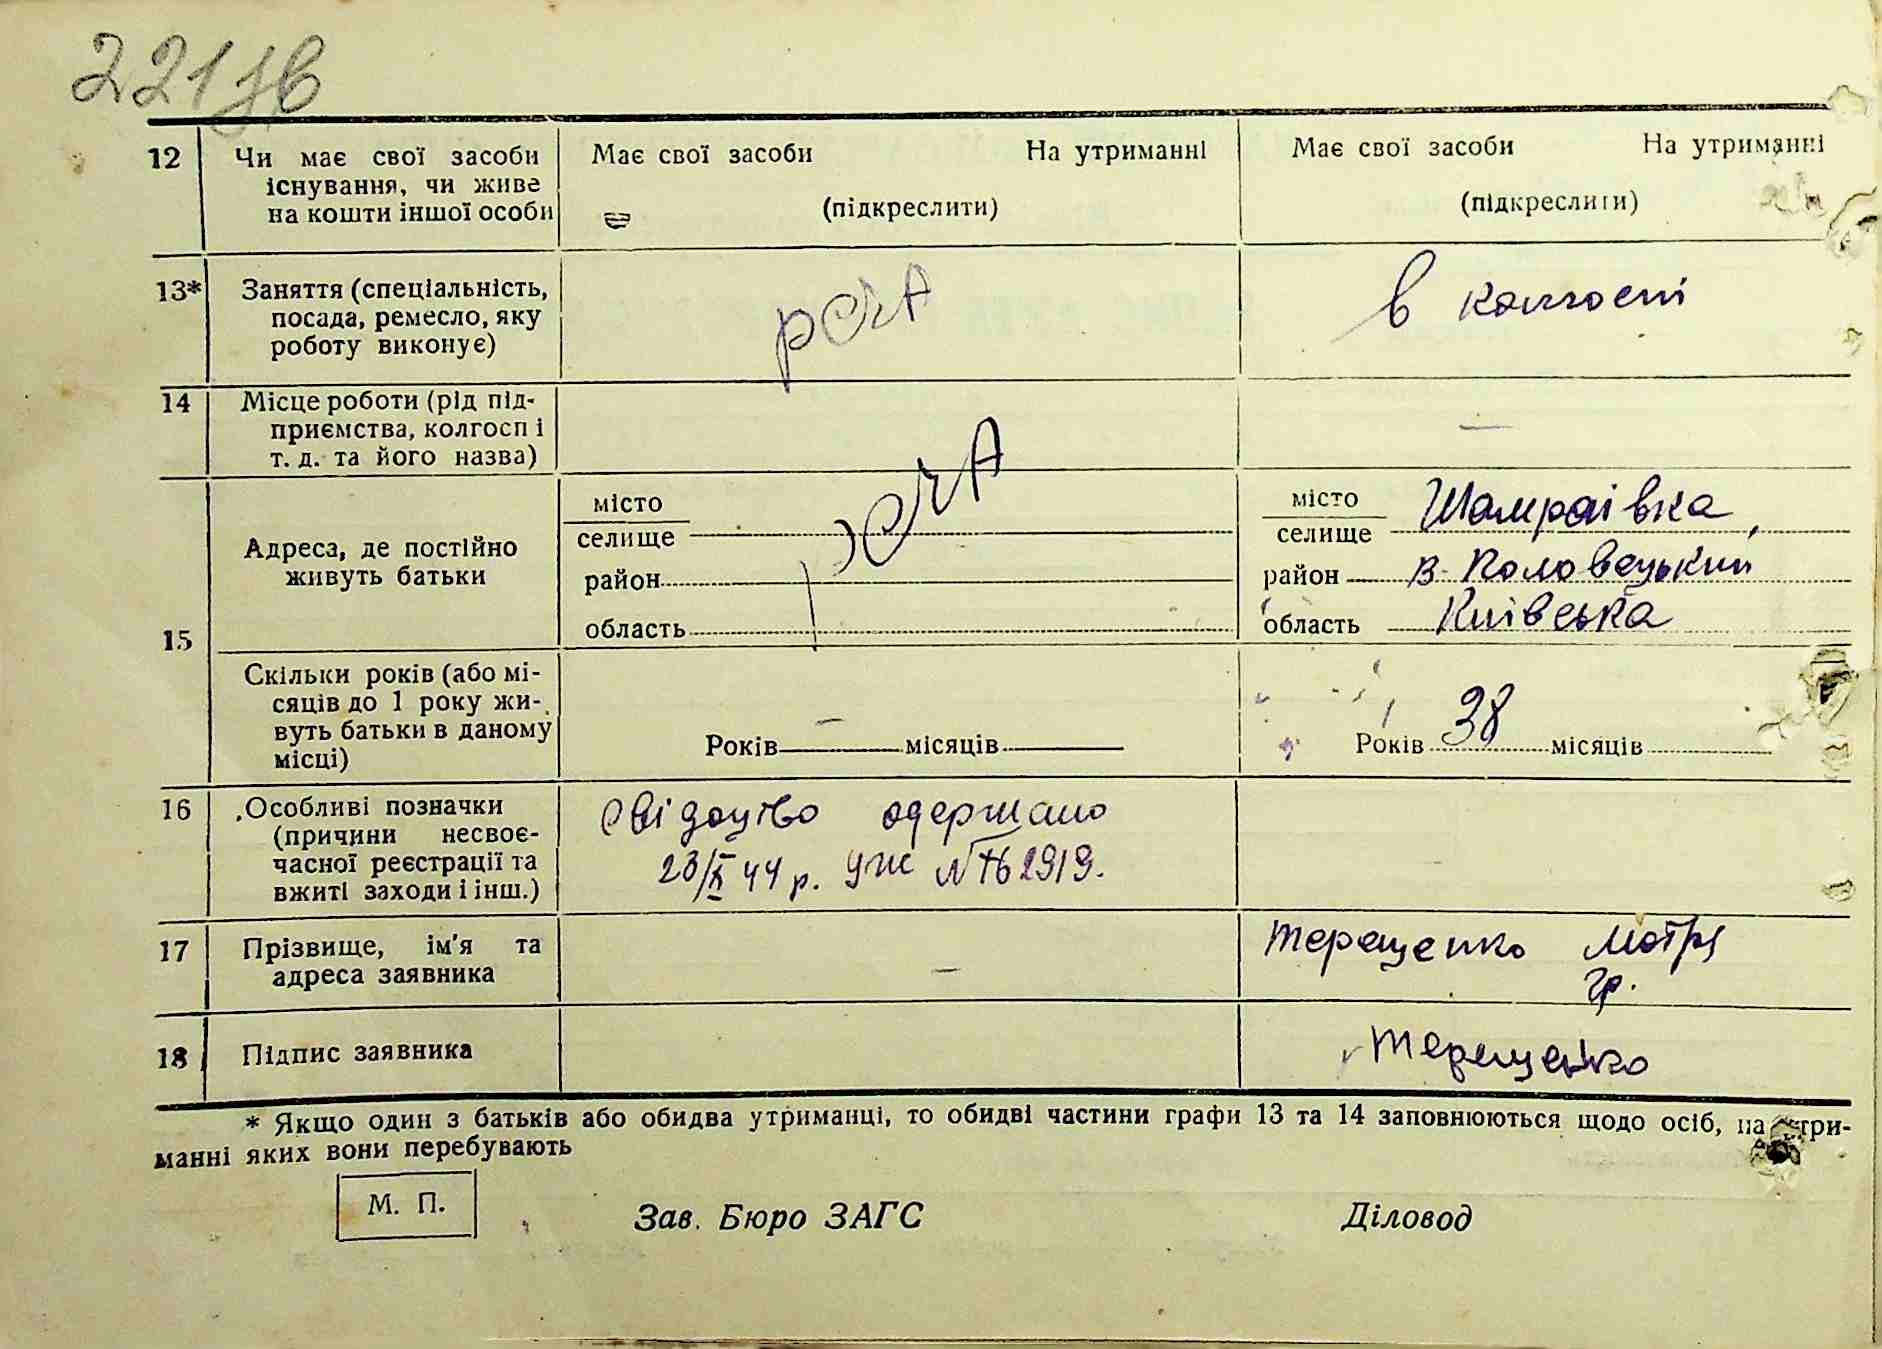 221 зв
12 Чи має свої засоби існування, чи живе на кошти іншої особи
Має свої засоби На утриманні
(підкреслити)
Має свої засоби На утриманні
(підкреслити)
13* Заняття (спеціальність, посада, ремесло, яку роботу виконує)
РСЧА
в колгоспі
14 Місце роботи (рід підприємства, колгосп і т. д. та його назва)
—
15 Адреса, де постійно живуть батьки
місто
селище
район
область
РСЧА
місто
селище Шамраївка,
район В-Половецький
область Київська
Скільки років (або місяців до 1 року живуть батьки в даному місці)
Років — місяців
Років 38 місяців
16 Особливі позначки (причини несвоєчасної реєстрації та вжиті заходи і інш.)
Свідоцтво одержано
23/X 44 р. УЖ № 762919.
17 Прізвище, ім'я та адреса заявника
—
Терещенко Мотря
Гр.
18 Підпис заявника
Терещенко
* Якщо один з батьків або обидва утриманці, то обидві частини графи 13 та 14 заповнюються щодо осіб, на утри-
манні яких вони перебувають
М. П.
Зав. Бюро ЗАГС
Діловод